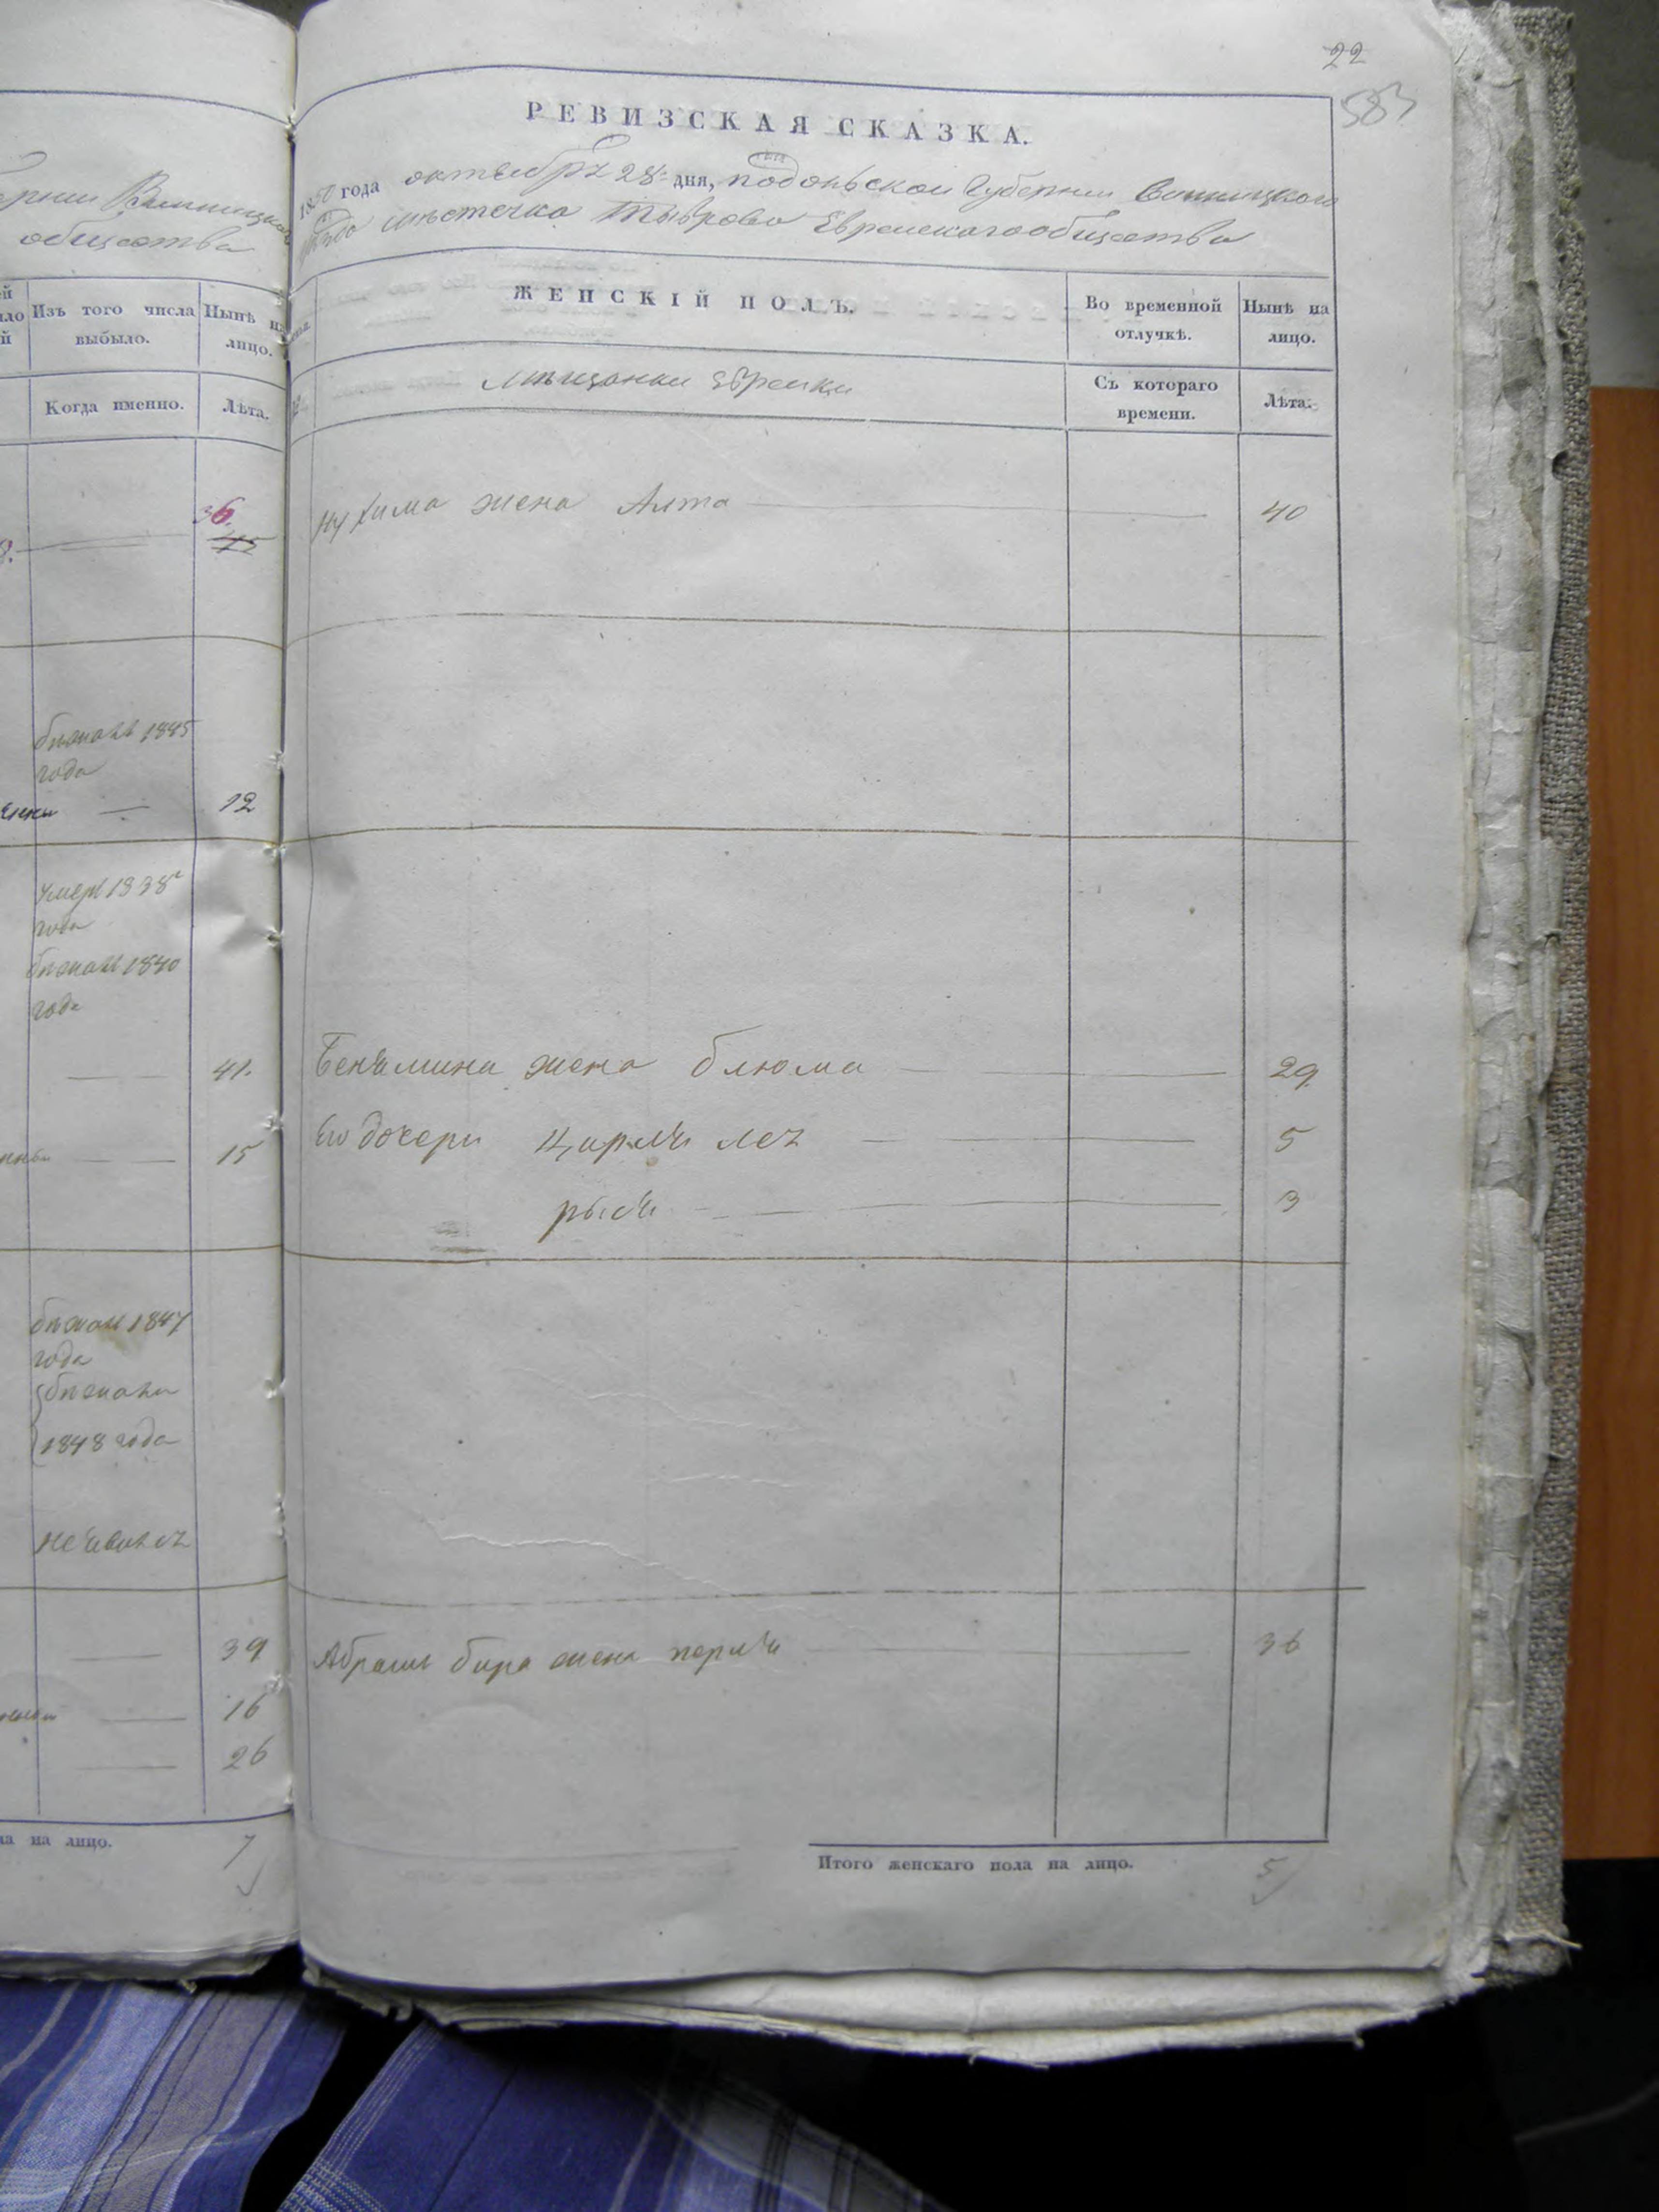 22
583
РЕВИЗСКАЯ СКАЗКА.
1850 года октября 28 дня, подольской Губернии Винницкого
уѣзда мѣстечка Тыврова Еврейскаго общества
ЖЕНСКІЙ ПОЛЪ.
Во временной отлучкѣ.
Нынѣ на лицо.
мѣщанки Еврейки
Съ котораго времени.
Лѣта.
Нухима жена Алта 40
Бенямина жена блюма 29
Его дочери Цирля лея 5
рыся 3
Абрамъ бера жена перля 36
Итого женскаго пола на лицо. 5
общества
Изъ того числа выбыло.
Нынѣ на лицо.
Когда именно.
Лѣта.
36.
45
бѣжалъ 1845
года
12
умеръ 1838
года
бѣжалъ 1840
года
41.
15
бѣжалъ 1847
года
бѣжали
1848 года
неявился
39
16
26
на лицо. 7